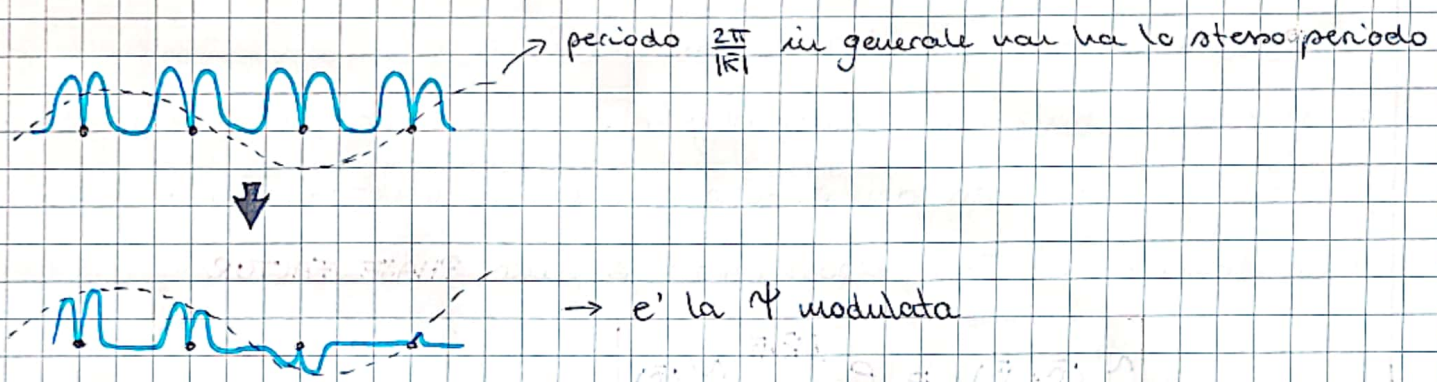 periodo 2π/|k̄| in generale non ha lo stesso periodo
→ e' la Ψ modulata